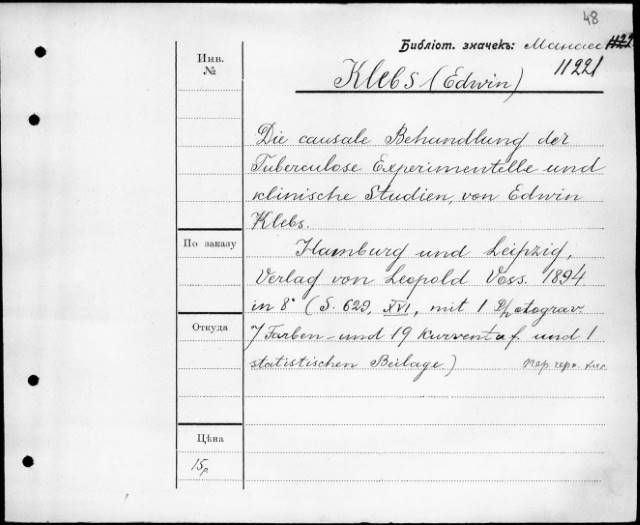 48
Библіот. значекъ: Манасе 1122
11221
Инв.
№
Klebs (Edwin)
Die causale Behandlung der
Tuberculose Experimentelle und
klinische Studien, von Edwin
Klebs.
По заказу
Hamburg und Leipzig,
Verlag von Leopold Voss. 1894
in 8° (S. 629, XVI, mit 1 Photograv.
Откуда
7 Farben- und 19 Kurventaf. und 1
statistischen Beilage)
Цѣна
15р